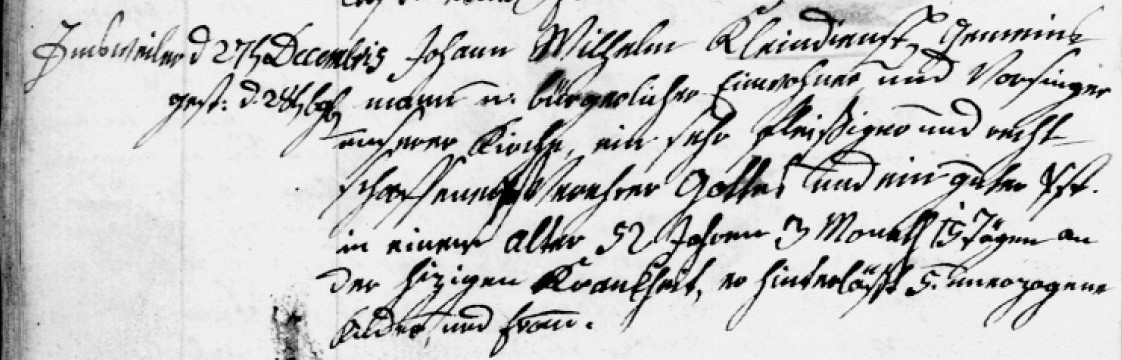 Imsweiler d 27t Decembris Johann Wilhelm Kleindienst, Gemeins
gest: d. 28t mann u. bürgerlicher Einwohner und Vorsinger
unserer Kirche, ein sehr fleißiger und recht
schaffener Verehrer Gottes und ein guter
in einem alter 52 Jahren 3 Monath 15 Tägen an
der hizigen Krankheit, er hinterläßt 5. unerzogene
Kilder, und Frau.